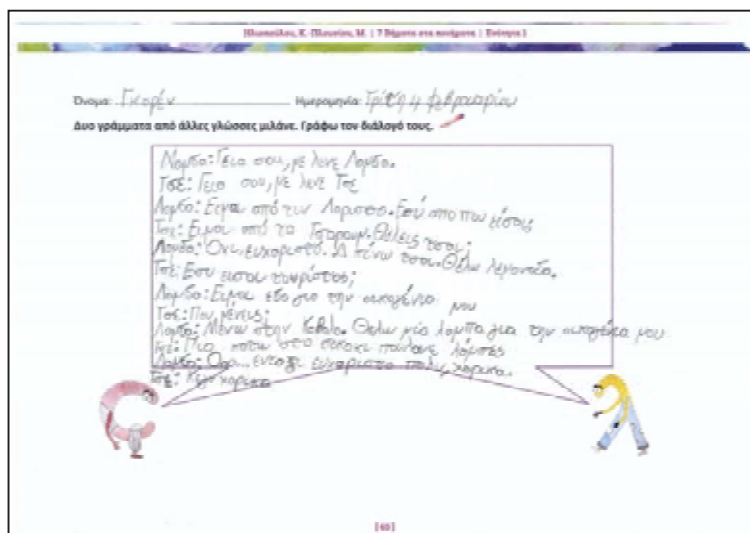 Ηλιοπούλου, Κ. -Πλουσίου, Μ. | 7 Βήματα στα ποιήματα | Ενότητα 1
Όνομα: Γκορέν Ημερομηνία: Τρίτη 4 Φεβρουαρίου
Δυο γράμματα από άλλες γλώσσες μιλάνε. Γράφω τον διάλογό τους.
Λαμδα: Γεια σου, με λενε Λαμδα.
Τσε: Γεια σου, με λενε Τσε
Λαμδα: Ειμαι από την Λαρισσα. Εσύ απο που εισαι;
Τσε: Ειμαι από το Θελεις τσαι;
Λαμδα: Οχι, ευχαριστώ. Δ πίνω τσαι. Θελω λεμοναδα.
Τσε: Εσυ εισαι τουρίστας;
Λαμδα: Ειμαι εδο για την οικογένια μου
Τσε: Που μενεις;
Λαμδα: Μενω στην Θελω μία λαμπα για την οικογενεια μου
Τσε: Πιο κατω στο πουλανε λάμπες
Λαμδα: Ααα... ενταξι ευχαριστω πολυ, χαρικα.
Τσε: Κεγω χαρικα
[60]